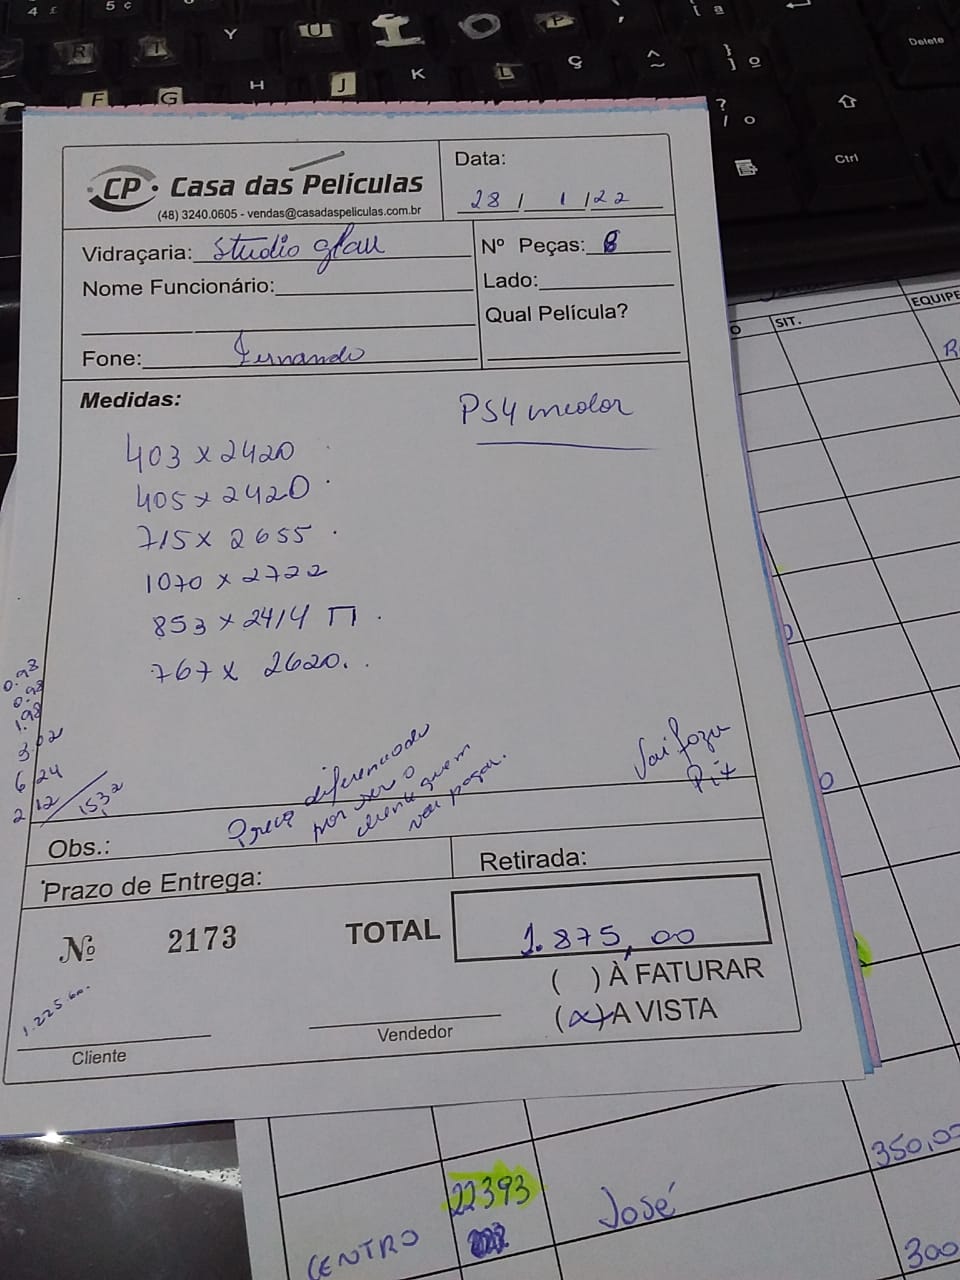 4 £
5 ¢
R
T
Y
U
I
O
P
F
G
H
J
K
L
Ç
^
~
[ ª
} ]
º
?
/ °
Delete
Ctrl
CP Casa das Películas
(48) 3240.0605 - vendas@casadaspeliculas.com.br
Data:
28 / 1 / 22
Vidraçaria: Studio glau
Nº Peças: 8
Nome Funcionário:
Lado:
Qual Película?
Fone: Fernando
Medidas:
PS4 incolor
403 x 2420
405 x 2420
715 x 2655
1070 x 2722
853 x 2414 П
767 x 2620
0.98
0.98
1.98
3.02
6 24
2 12 / 15,32
Preço diferenciado
por ser o
cliente quem
vai pagar.
Vai fazer
Pix
Obs.:
Prazo de Entrega:
Retirada:
Nº 2173
TOTAL 1.875,00
( ) À FATURAR
(x) A VISTA
1.225,60.
Cliente
Vendedor
SIT.
EQUIPE
22393
CENTRO
José
350,00
300